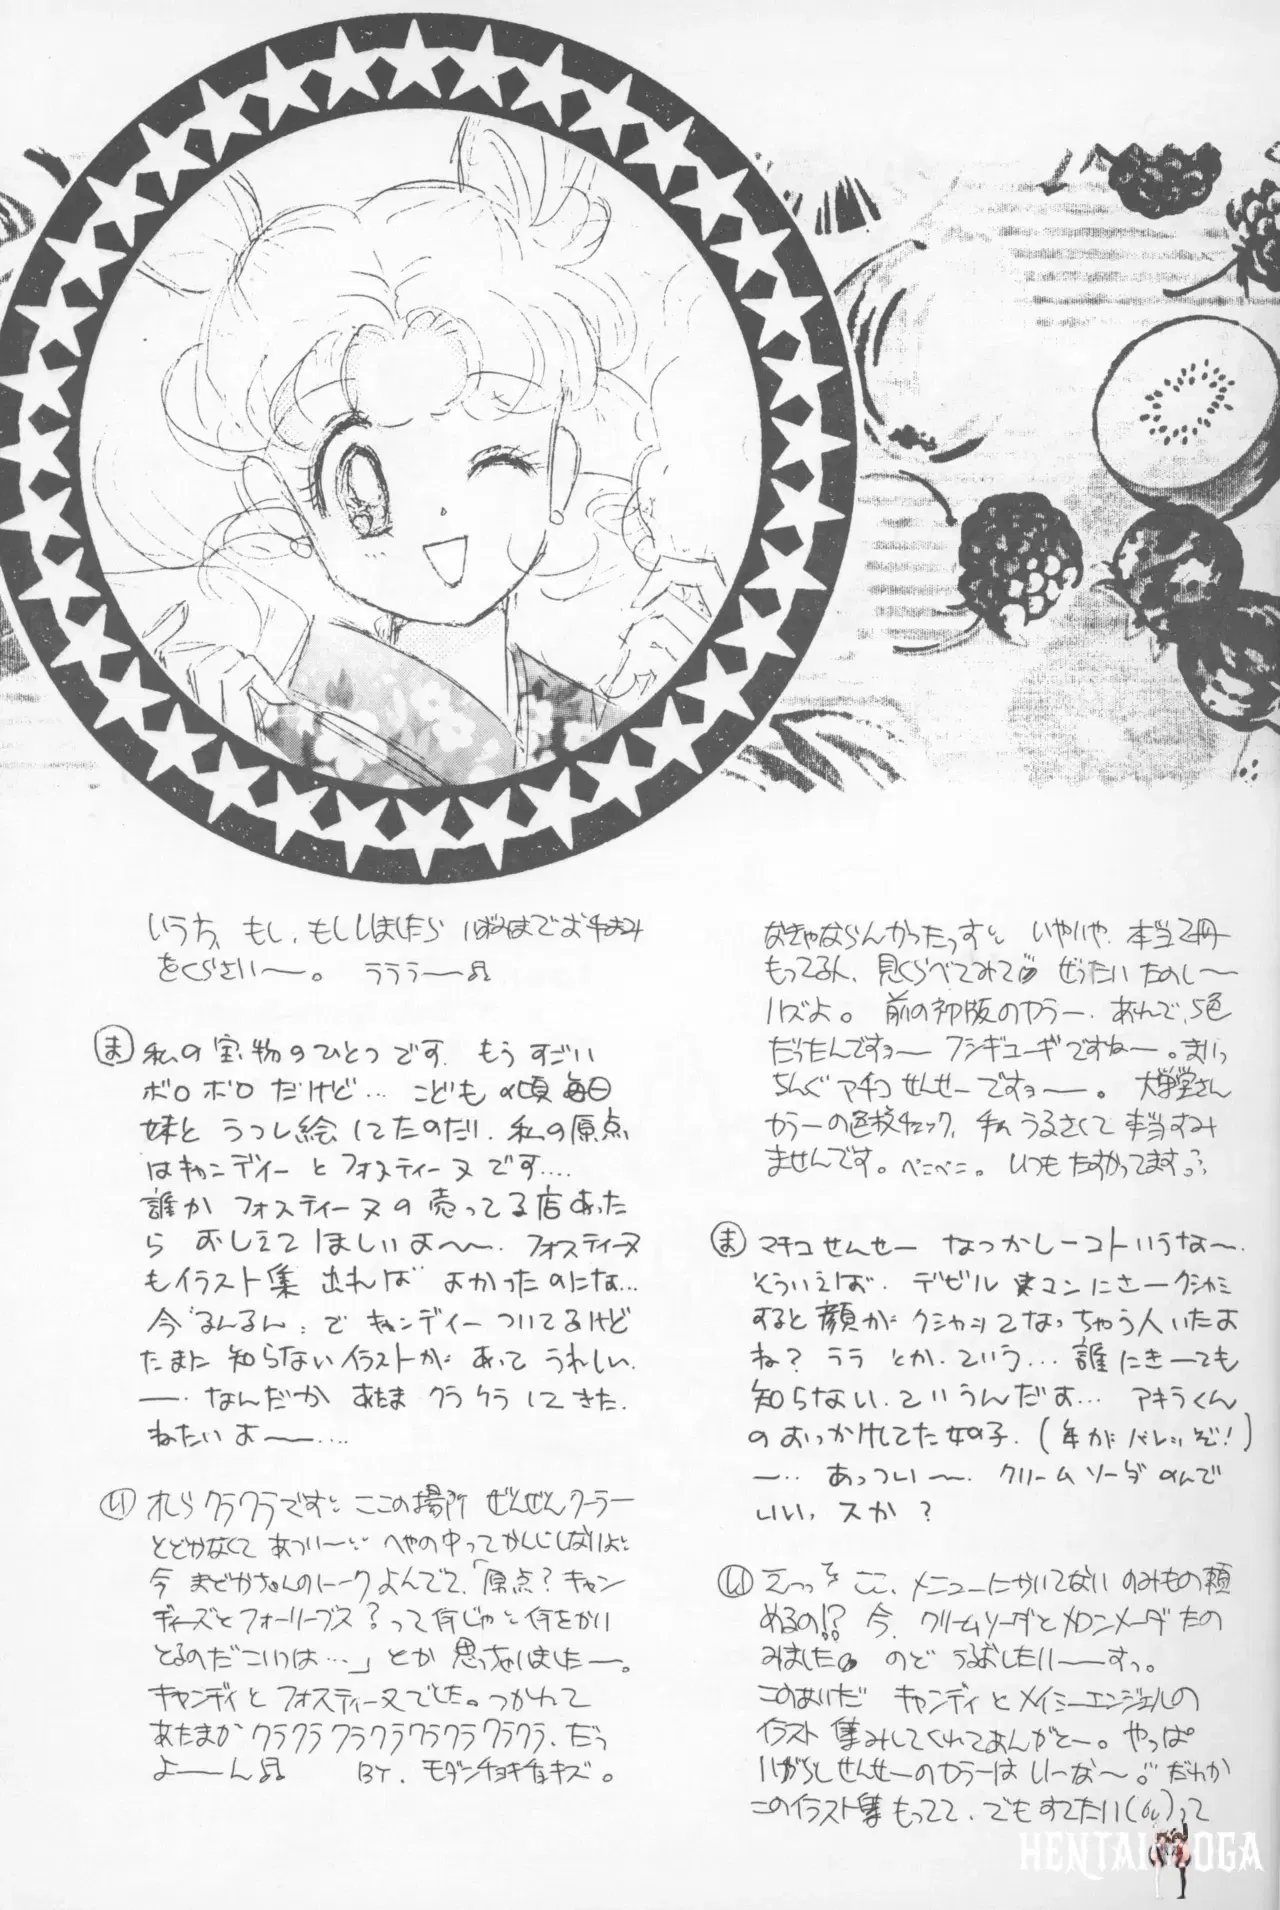 いうち、もし、もししましたら いばみまでお手おみ
をくださいー。 ラララー♫
ま 私の宝物のひとつです。もうすごい
ボロボロだけど… こどもの頃毎日
妹と うつし絵してたのだ!! 私の原点
はキャンディーとフォスティーヌです‥‥
誰か フォスティーヌの売ってる店あった
ら おしえてほしいよ〜〜。フォスティーヌ
もイラスト集 出れば よかったのにな…
今"るんるん"で キャンディーついてるけど
たまに 知らないイラストが あって うれしい。
ー‥ なんだか あたま クラクラしてきた。
ねたいよーー‥‥
い おれら クラクラです ここの場所 ぜんぜんクーラー
とどかなくて あついー へやの中ってかんじしないよ
今 まどかちゃんのトークよんでて、「原点?キャン
ディーズとフォーリーブス?って何じゃと何をかい
とるのだこいつは…」とか思っちゃいましたー。
キャンディとフォスティーヌでした。つかれて
あたまがクラクラクラクラクラクラクラクラ。だう
よーーん♫ BY. モダンチョキチョキズ。
なきゃならんかったっすい いやいや、本当2冊
もってる人、見くらべてみて ぜったいたのしー
ハズよ。前の初版のカラー、あれで、5色
だったんですョー フシギユーギですねー。まいっ
ちんぐマチコせんせーですョー。 大学堂さん
カラーの色校チェック、私うるさくて本当すみ
ませんです。ぺこぺこ。いつもたすかってます
ま マチコせんせー なつかしーコトいうな〜。
そういえば、デビルマンにさークシャミ
すると顔が クシャンてなっちゃう人いたよ
ね? ララとか。ていう… 誰にきーても
知らない。ていうんだよ… アキラくん
のおっかけしてた女の子。(年がバレッぞ!)
ー‥ あっついー、クリームソーダのんで
いい、スか?
い えっっ ここ、メニューにかいてないのみもの頼
めるの!? 今、クリームソーダとメロンメーダ たの
みました のど うるおしたいーーすっ。
このあいだ キャンディとメイミーエンジェルの
イラスト集みしてくれてありがとー。やっぱ
いがらしせんせーのカラーは いーなー。だれか
このイラスト集もってて、でもすてたいって
HENTAI OGA